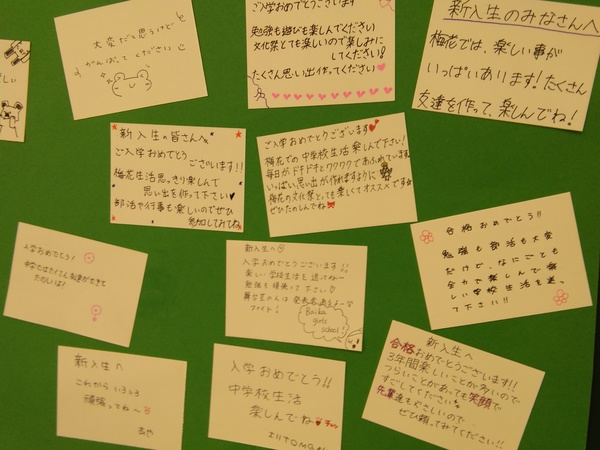 大変だと思うけど
がんばってください
ご入学おめでとうございます
勉強も遊びも楽しんでください
文化祭とても楽しいので楽しみに
してください!
たくさん思い出作ってください
新入生のみなさんへ
梅花では、楽しい事が
いっぱいあります!たくさん
友達を作って、楽しんでね!
新入生の皆さんへ
ご入学おめでとう
ございます!!
梅花生活思っきり楽しんで
思い出を作って下さい♥
部活や行事も楽しいのでぜひ
参加してみてね
ご入学おめでとうございます♥
梅花での中学校生活楽しんで下さい!
毎日がドキドキとワクワクであふれています
いっぱい思い出が作れますように
梅花の文化祭とっても楽しくてオススメです☆
ぜひたのしんでね
合格おめでとう!!
勉強も部活も大変
だけど、なにごとも
全力で楽しんで楽
しい学校生活を送っ
て下さい!!
入学おめでとう!
中学ではたくさん友達ができて
たのしいよ!
新入生へ
入学おめでとうございます!!
楽しい学校生活を送ってねー
勉強も頑張って下さい
ファイト!
Baika
girls
school!
新入生へ
これから いろいろ
頑張ってね〜
入学おめでとう!!
中学校生活
楽しんでね♥
新入生へ
合格おめでとうございます!!
3年間楽しいことが多いので
つらいことがあっても笑顔で
すごしてください
先輩達もやさしいので
ぜひ頼ってみてください!!